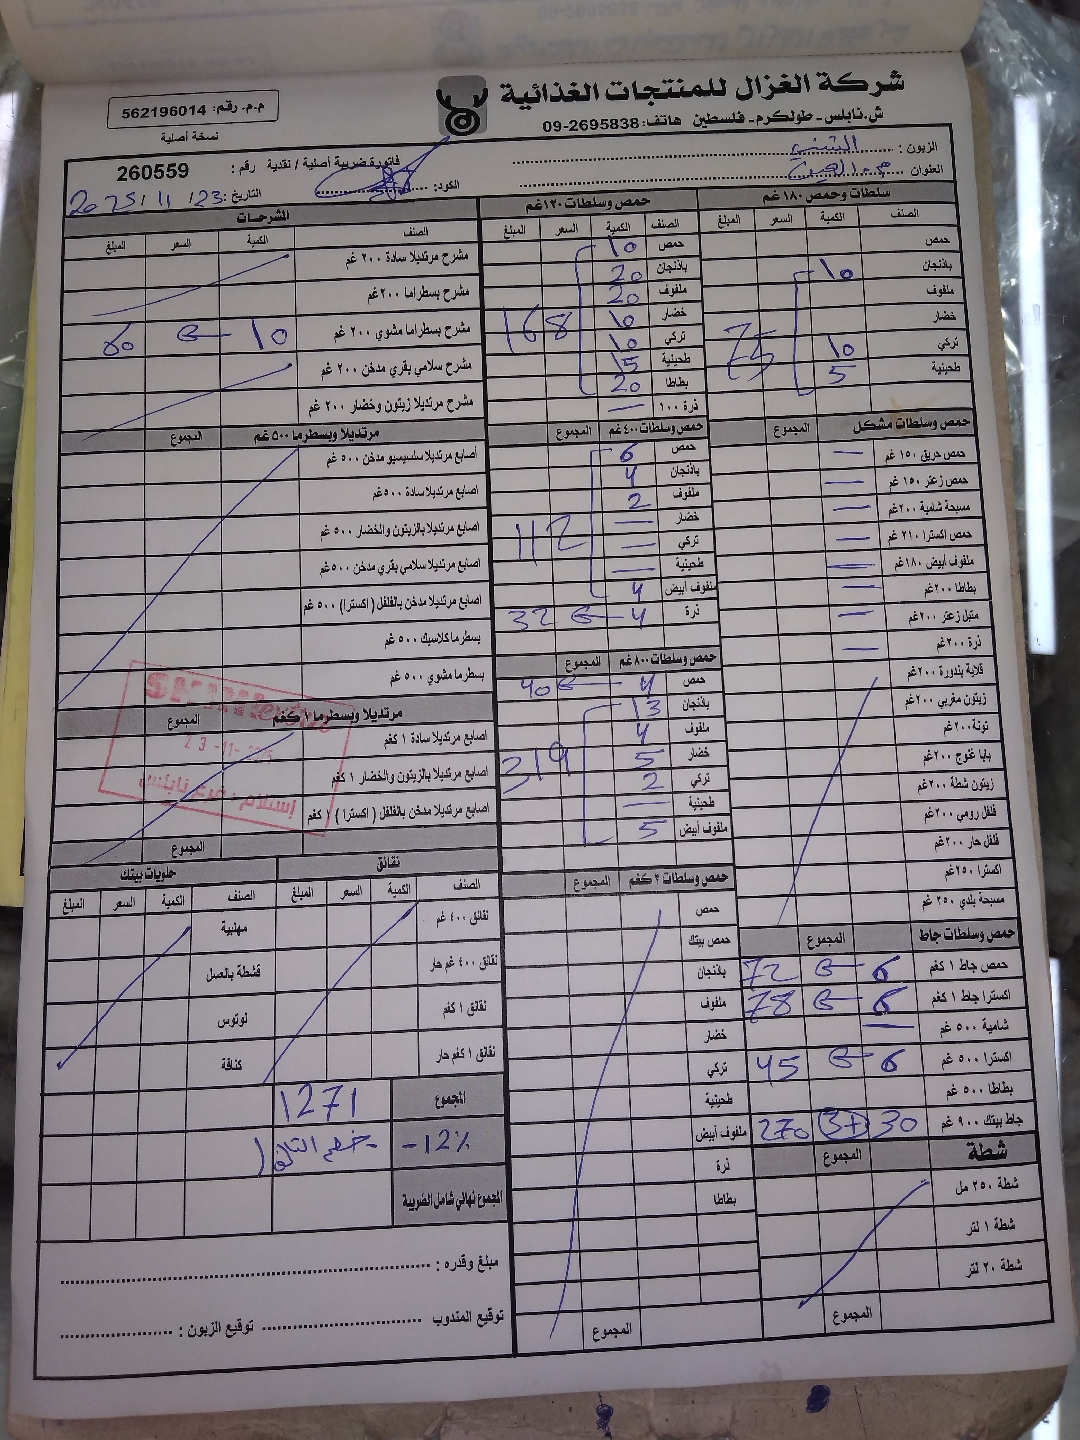 شركة الغزال للمنتجات الغذائية
ش.نابلس - طولكرم - فلسطين هاتف: 09-2695838
م.م. رقم: 562196014
نسخة أصلية
الزبون :
العنوان
فاتورة ضريبية أصلية / نقدية رقم : 260559
الكود:
التاريخ : 23/11/2025
سلطات وحمص ١٨٠غم
الصنف الكمية السعر المبلغ
حمص
باذنجان 10
ملفوف
خضار
تركي 10
طحينية 5
75
حمص وسلطات مشكل المجموع
حمص حريق ١٥٠ غم —
حمص زعتر ١٥٠ غم —
مسبحة شامية ٢٠٠غم —
حمص اكسترا ٢١٠ غم —
ملفوف أبيض ١٨٠غم —
بطاطا ٢٠٠غم —
متبل زعتر ٢٠٠غم —
ذرة ٢٠٠غم —
قلاية بندورة ٢٠٠غم
زيتون مغربي ٢٠٠غم
تونة ٢٠٠غم
بابا غنوج ٢٠٠غم
زيتون شطة ٢٠٠غم
فلفل رومي ٢٠٠غم
فلفل حار ٢٠٠غم
اكسترا ٢٥٠غم
مسبحة بلدي ٢٥٠ غم
حمص وسلطات جاط المجموع
حمص جاط ١ كغم 6 72
اكسترا جاط ١ كغم 6 78
شامية ٥٠٠ غم —
اكسترا ٥٠٠ غم 6 45
بطاطا ٥٠٠ غم
جاط بيتك ٩٠٠ غم 30 (3+) 270
شطة المجموع
شطة ٢٥٠ مل
شطة ١ لتر
شطة ٢٠ لتر
المجموع
حمص وسلطات ١٢٠غم
الصنف الكمية السعر المبلغ
حمص 10
باذنجان 20
ملفوف 20
خضار 10
تركي 10
طحينية 15
بطاطا 20
168
ذرة ١٠٠ —
حمص وسلطات ٤٠٠ غم المجموع
حمص 6
باذنجان 4
ملفوف 2
خضار —
تركي —
طحينية —
ملفوف أبيض 4
112
ذرة 4 32
حمص وسلطات ٨٠٠ غم المجموع
حمص 4 40
باذنجان 13
ملفوف 4
خضار 5
تركي 2
طحينية —
ملفوف أبيض 5
319
حمص وسلطات ٢ كغم المجموع
حمص
حمص بيتك
باذنجان
ملفوف
خضار
تركي
طحينية
ملفوف أبيض
ذرة
بطاطا
المجموع
المشرحات
الصنف الكمية السعر المبلغ
مشرح مرتديلا سادة ٢٠٠ غم
مشرح بسطراما ٢٠٠غم
مشرح بسطراما مشوي ٢٠٠ غم 10 60
مشرح سلامي بقري مدخن ٢٠٠ غم
مشرح مرتديلا زيتون وخضار ٢٠٠ غم
مرتديلا وبسطرما ٥٠٠ غم المجموع
اصابع مرتديلا سلسيسيو مدخن ٥٠٠ غم
اصابع مرتديلا سادة ٥٠٠غم
اصابع مرتديلا بالزيتون والخضار ٥٠٠ غم
اصابع مرتديلا سلامي بقري مدخن ٥٠٠غم
اصابع مرتديلا مدخن بالفلفل ( اكسترا ) ٥٠٠ غم
بسطرما كلاسيك ٥٠٠ غم
بسطرما مشوي ٥٠٠ غم
مرتديلا وبسطرما ١ كغم المجموع
اصابع مرتديلا سادة ١ كغم
اصابع مرتديلا بالزيتون والخضار ١ كغم
اصابع مرتديلا مدخن بالفلفل ( اكسترا ) ١ كغم
المجموع
23-11-
إستلام : فرع نابلس
نقانق
الصنف الكمية السعر المبلغ
نقانق ٤٠٠ غم
نقانق ٤٠٠ غم حار
نقانق ١ كغم
نقانق ١ كغم حار
حلويات بيتك
الصنف الكمية السعر المبلغ
مهلبية
قشطة بالعسل
لوتوس
كنافة
المجموع 1271
-12% خصم التالف
المجموع نهائي شامل الضريبة
مبلغ وقدره :
توقيع المندوب
توقيع الزبون :